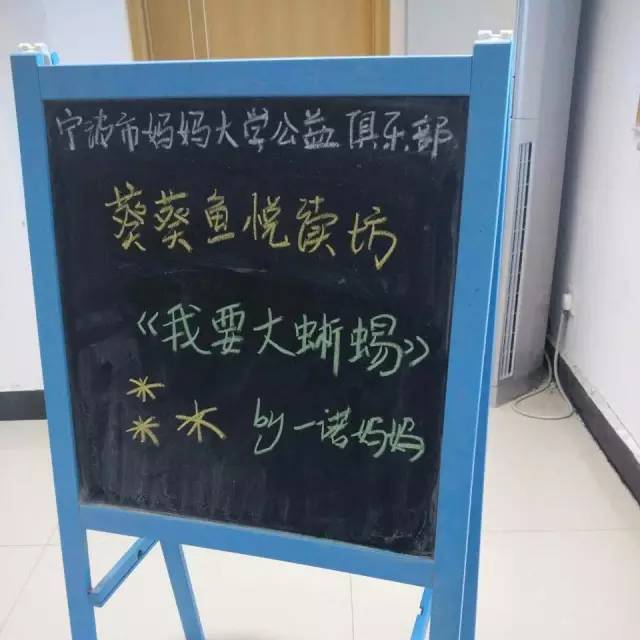 宁波市妈妈大学公益俱乐部
葵葵鱼悦读坊
《我要大蜥蜴》
by 一诺妈妈